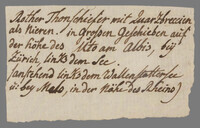 Rother Thonschiefer mit Quarzbreccien
als Nieren. in Großen Geschieben auf
der höhe des Uto am Albis, bey
Zürich, und dem See.
(anstehend und dem Wallenstattersee
u: bey Mels, in der Nähe des Rheins)